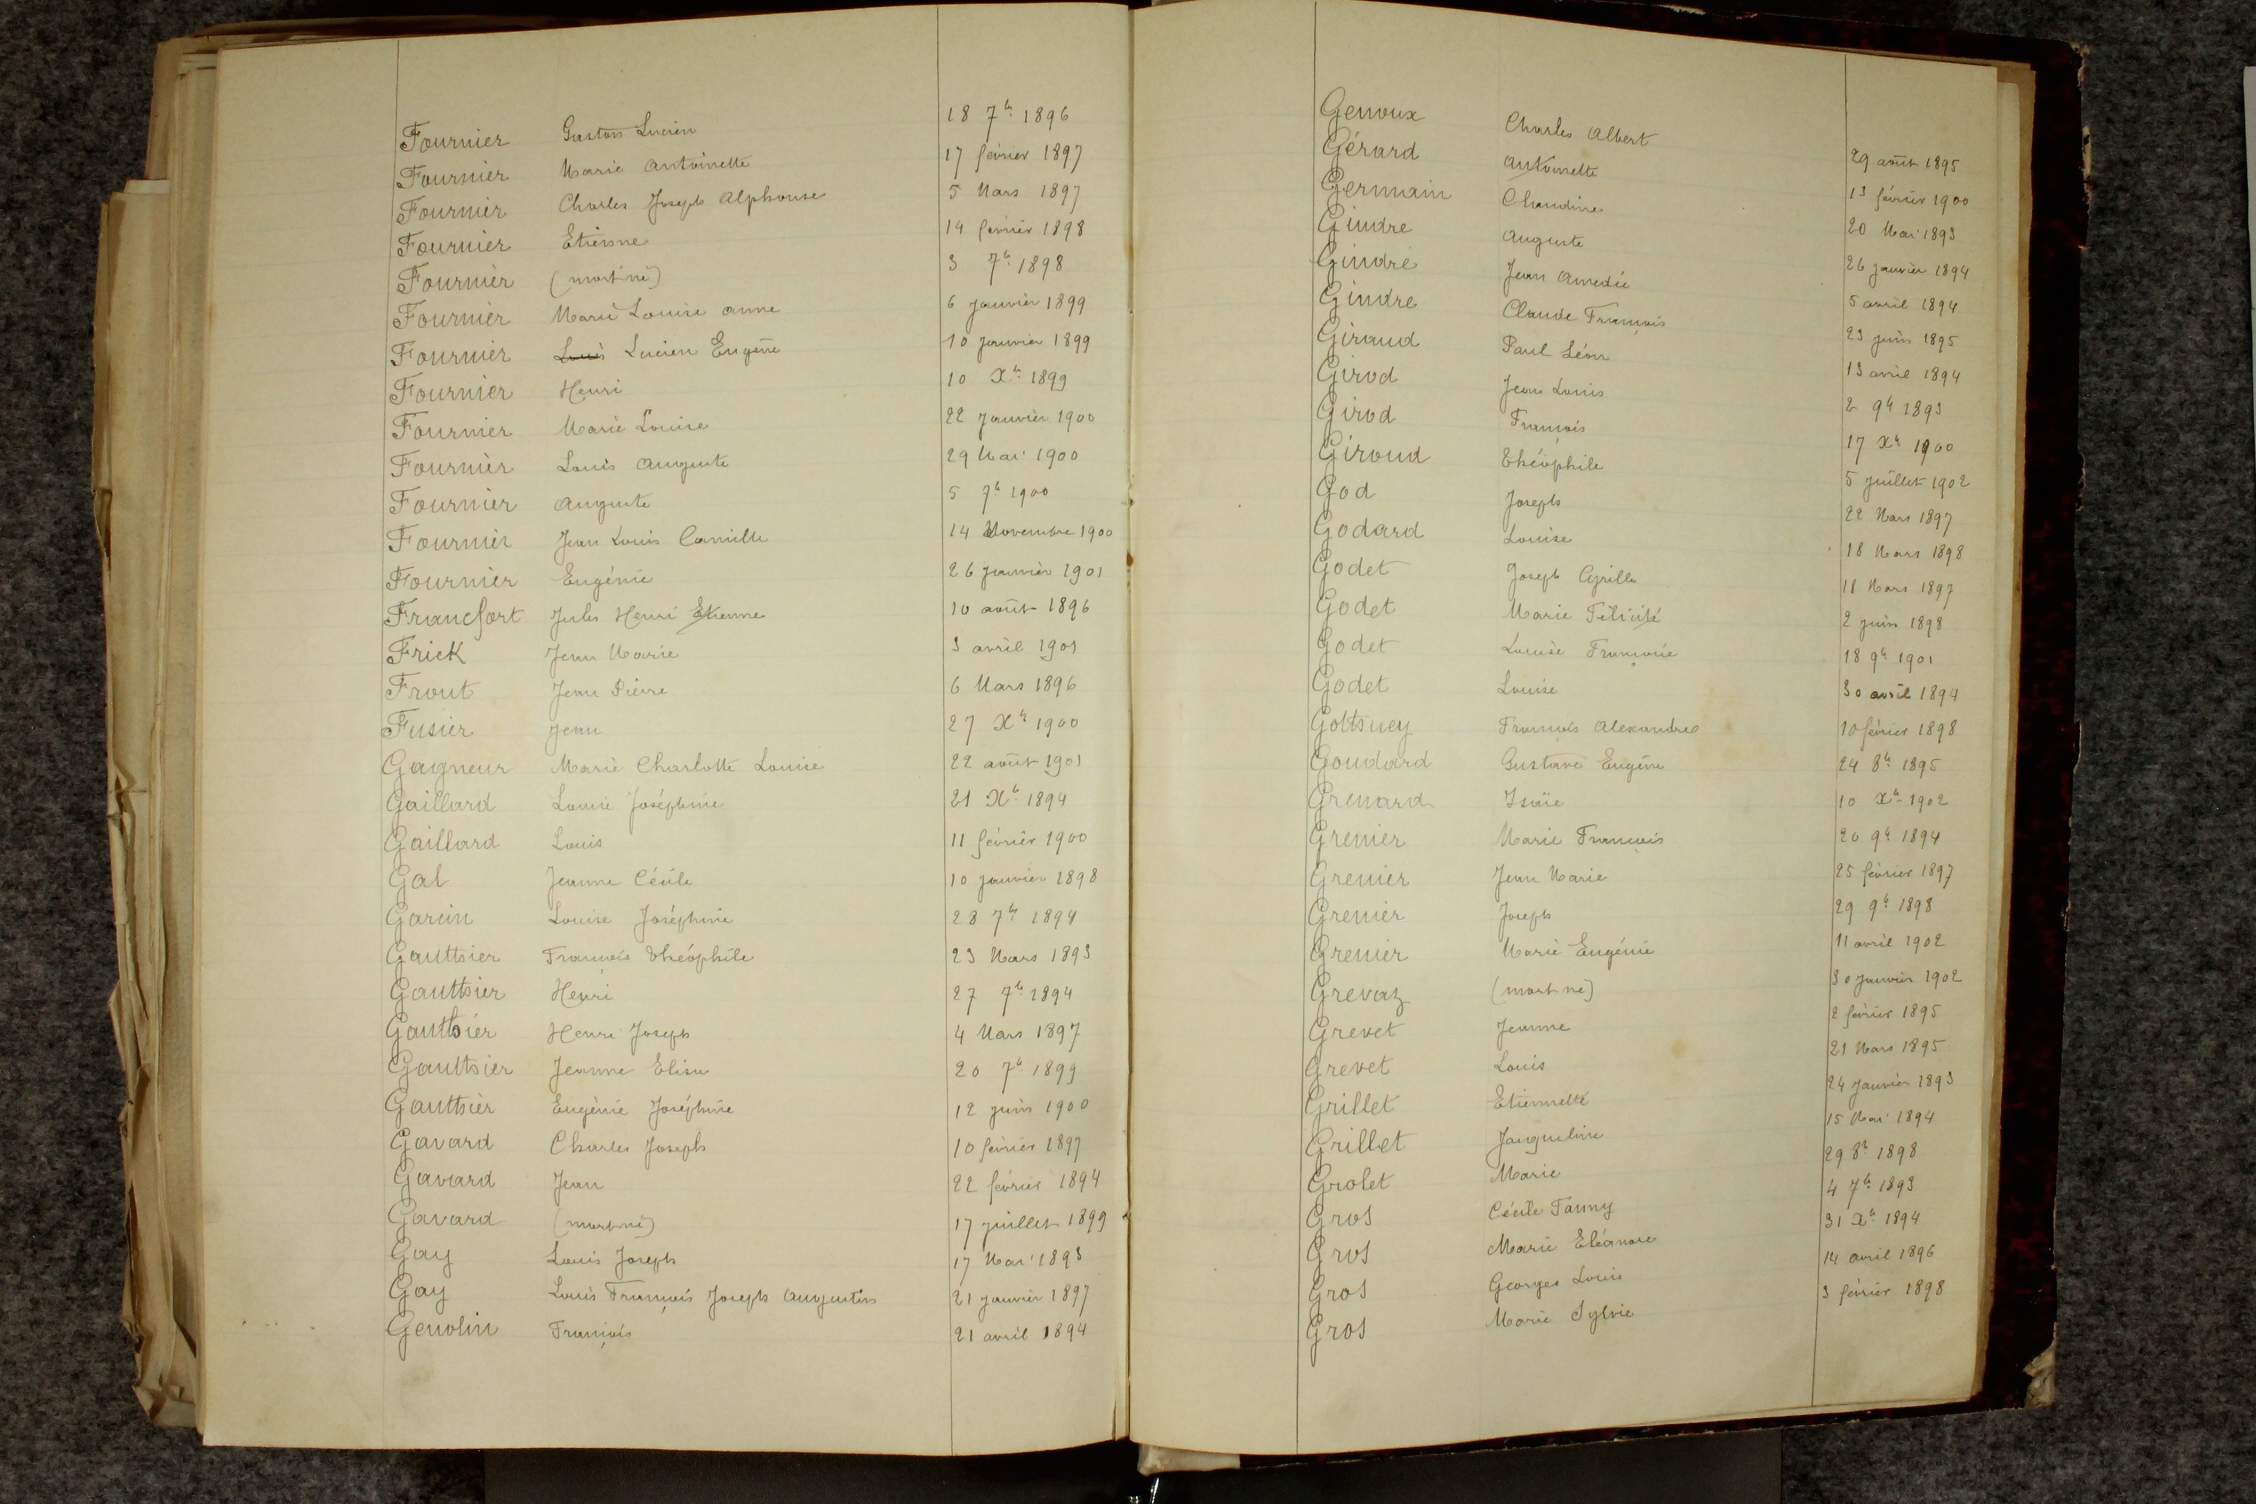 Fournier Gaston Lucien 18 7bre 1896
Fournier Marie Antoinette 17 février 1897
Fournier Charles Joseph Alphonse 5 Mars 1897
Fournier Etienne 14 février 1898
Fournier (mort né) 3 7bre 1898
Fournier Marie Louise Anne 6 janvier 1899
Fournier Louis Lucien Eugène 10 janvier 1899
Fournier Henri 10 Xbre 1899
Fournier Marie Louise 22 janvier 1900
Fournier Louis Auguste 29 Mai 1900
Fournier Auguste 5 9bre 1900
Fournier Jean Louis Camille 14 Novembre 1900
Fournier Eugénie 26 janvier 1901
Francfort Jules Henri Etienne 10 août 1896
Frick Jean Marie 3 avril 1901
Frout Jean Pierre 6 Mars 1896
Fusier Jean 27 Xbre 1900
Gagneur Marie Charlotte Louise 22 août 1901
Gaillard Louise Joséphine 21 Xbre 1894
Gaillard Louis 11 février 1900
Gal Jeanne Cécile 10 janvier 1898
Garcin Louise Joséphine 28 7bre 1894
Gauthier François Théophile 23 Mars 1893
Gauthier Henri 27 7bre 1894
Gauthier Henri Joseph 4 Mars 1897
Gauthier Jeanne Elisa 20 7bre 1899
Gauthier Eugènie Joséphine 12 juin 1900
Gavard Charles Joseph 10 février 1897
Gavard Jean 22 février 1894
Gavard (mort né) 17 juillet 1899
Gay Louis Joseph 17 Mai 1893
Gay Louis François Joseph Augustin 21 janvier 1897
Genolin François 21 avril 1894
Genoux Charles Albert 29 août 1895
Gérard Antoinette 13 février 1900
Germain Claudine 20 Mai 1893
Gindre Auguste 26 janvier 1894
Gindre Jean Amedée 5 avril 1894
Gindre Claude François 23 juin 1895
Giraud Paul Léon 13 avril 1894
Girod Jean Louis 2 9bre 1893
Girod François 17 Xbre 1900
Giroud Théophile 5 juillet 1902
God Joseph 22 Mars 1897
Godard Louise 18 Mars 1898
Godet Joseph Cyrille 11 Mars 1897
Godet Marie Félicité 2 juin 1898
Godet Louise Françoise 18 9bre 1901
Godet Louise 30 avril 1894
Gottsuey François Alexandre 10 février 1898
Goudard Gustave Eugène 24 8bre 1895
Grenard Isaïe 10 Xbre 1902
Grenier Marie François 20 9bre 1894
Grenier Jean Marie 25 février 1897
Grenier Joseph 29 9bre 1898
Grenier Marie Eugénie 11 avril 1902
Grevaz (mort né) 30 janvier 1902
Grevet Jeanne 2 février 1895
Grevet Louis 21 Mars 1895
Grillet Etiennette 24 janvier 1893
Grillet Jacqueline 15 Mai 1894
Grolet Marie 29 8bre 1898
Gros Cécile Fanny 4 7bre 1893
Gros Marie Eléanore 31 Xbre 1894
Gros Georges Louis 14 avril 1896
Gros Marie Sylvie 3 février 1898